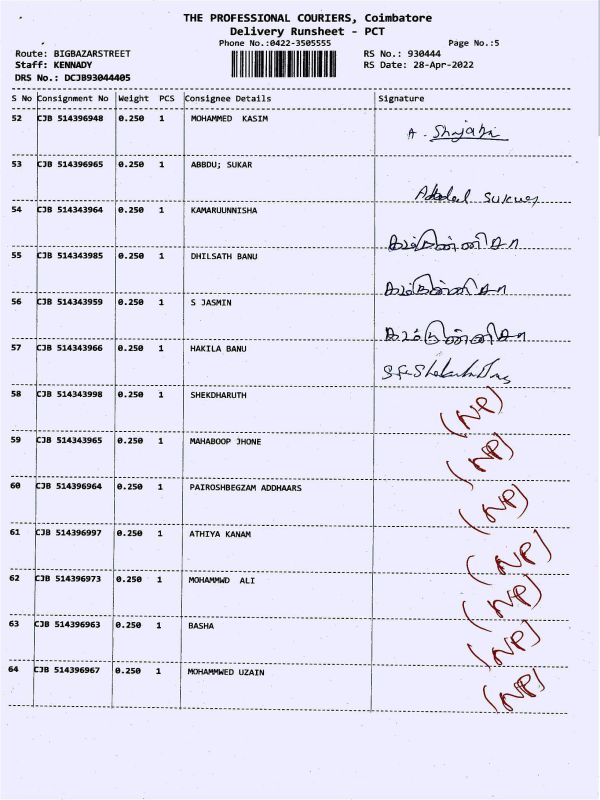 THE PROFESSIONAL COURIERS, Coimbatore
Delivery Runsheet - PCT
Phone No.:0422-3505555 Page No.:5
Route: BIGBAZARSTREET RS No.: 930444
Staff: KENNADY RS Date: 28-Apr-2022
DRS No.: DCJB93044405
S No Consignment No Weight PCS Consignee Details Signature
52 CJB 514396948 0.250 1 MOHAMMED KASIM
A.
53 CJB 514396965 0.250 1 ABBDU; SUKAR
Abdul Sukur
54 CJB 514343964 0.250 1 KAMARUUNNISHA
55 CJB 514343985 0.250 1 DHILSATH BANU
56 CJB 514343959 0.250 1 S JASMIN
57 CJB 514343966 0.250 1 HAKILA BANU
58 CJB 514343998 0.250 1 SHEKDHARUTH (NP)
59 CJB 514343965 0.250 1 MAHABOOP JHONE (NP)
60 CJB 514396964 0.250 1 PAIROSHBEGZAM ADDHAARS (NP)
61 CJB 514396997 0.250 1 ATHIYA KANAM (NP)
62 CJB 514396973 0.250 1 MOHAMMWD ALI (NP)
63 CJB 514396963 0.250 1 BASHA (NP)
64 CJB 514396967 0.250 1 MOHAMMWED UZAIN (NP)